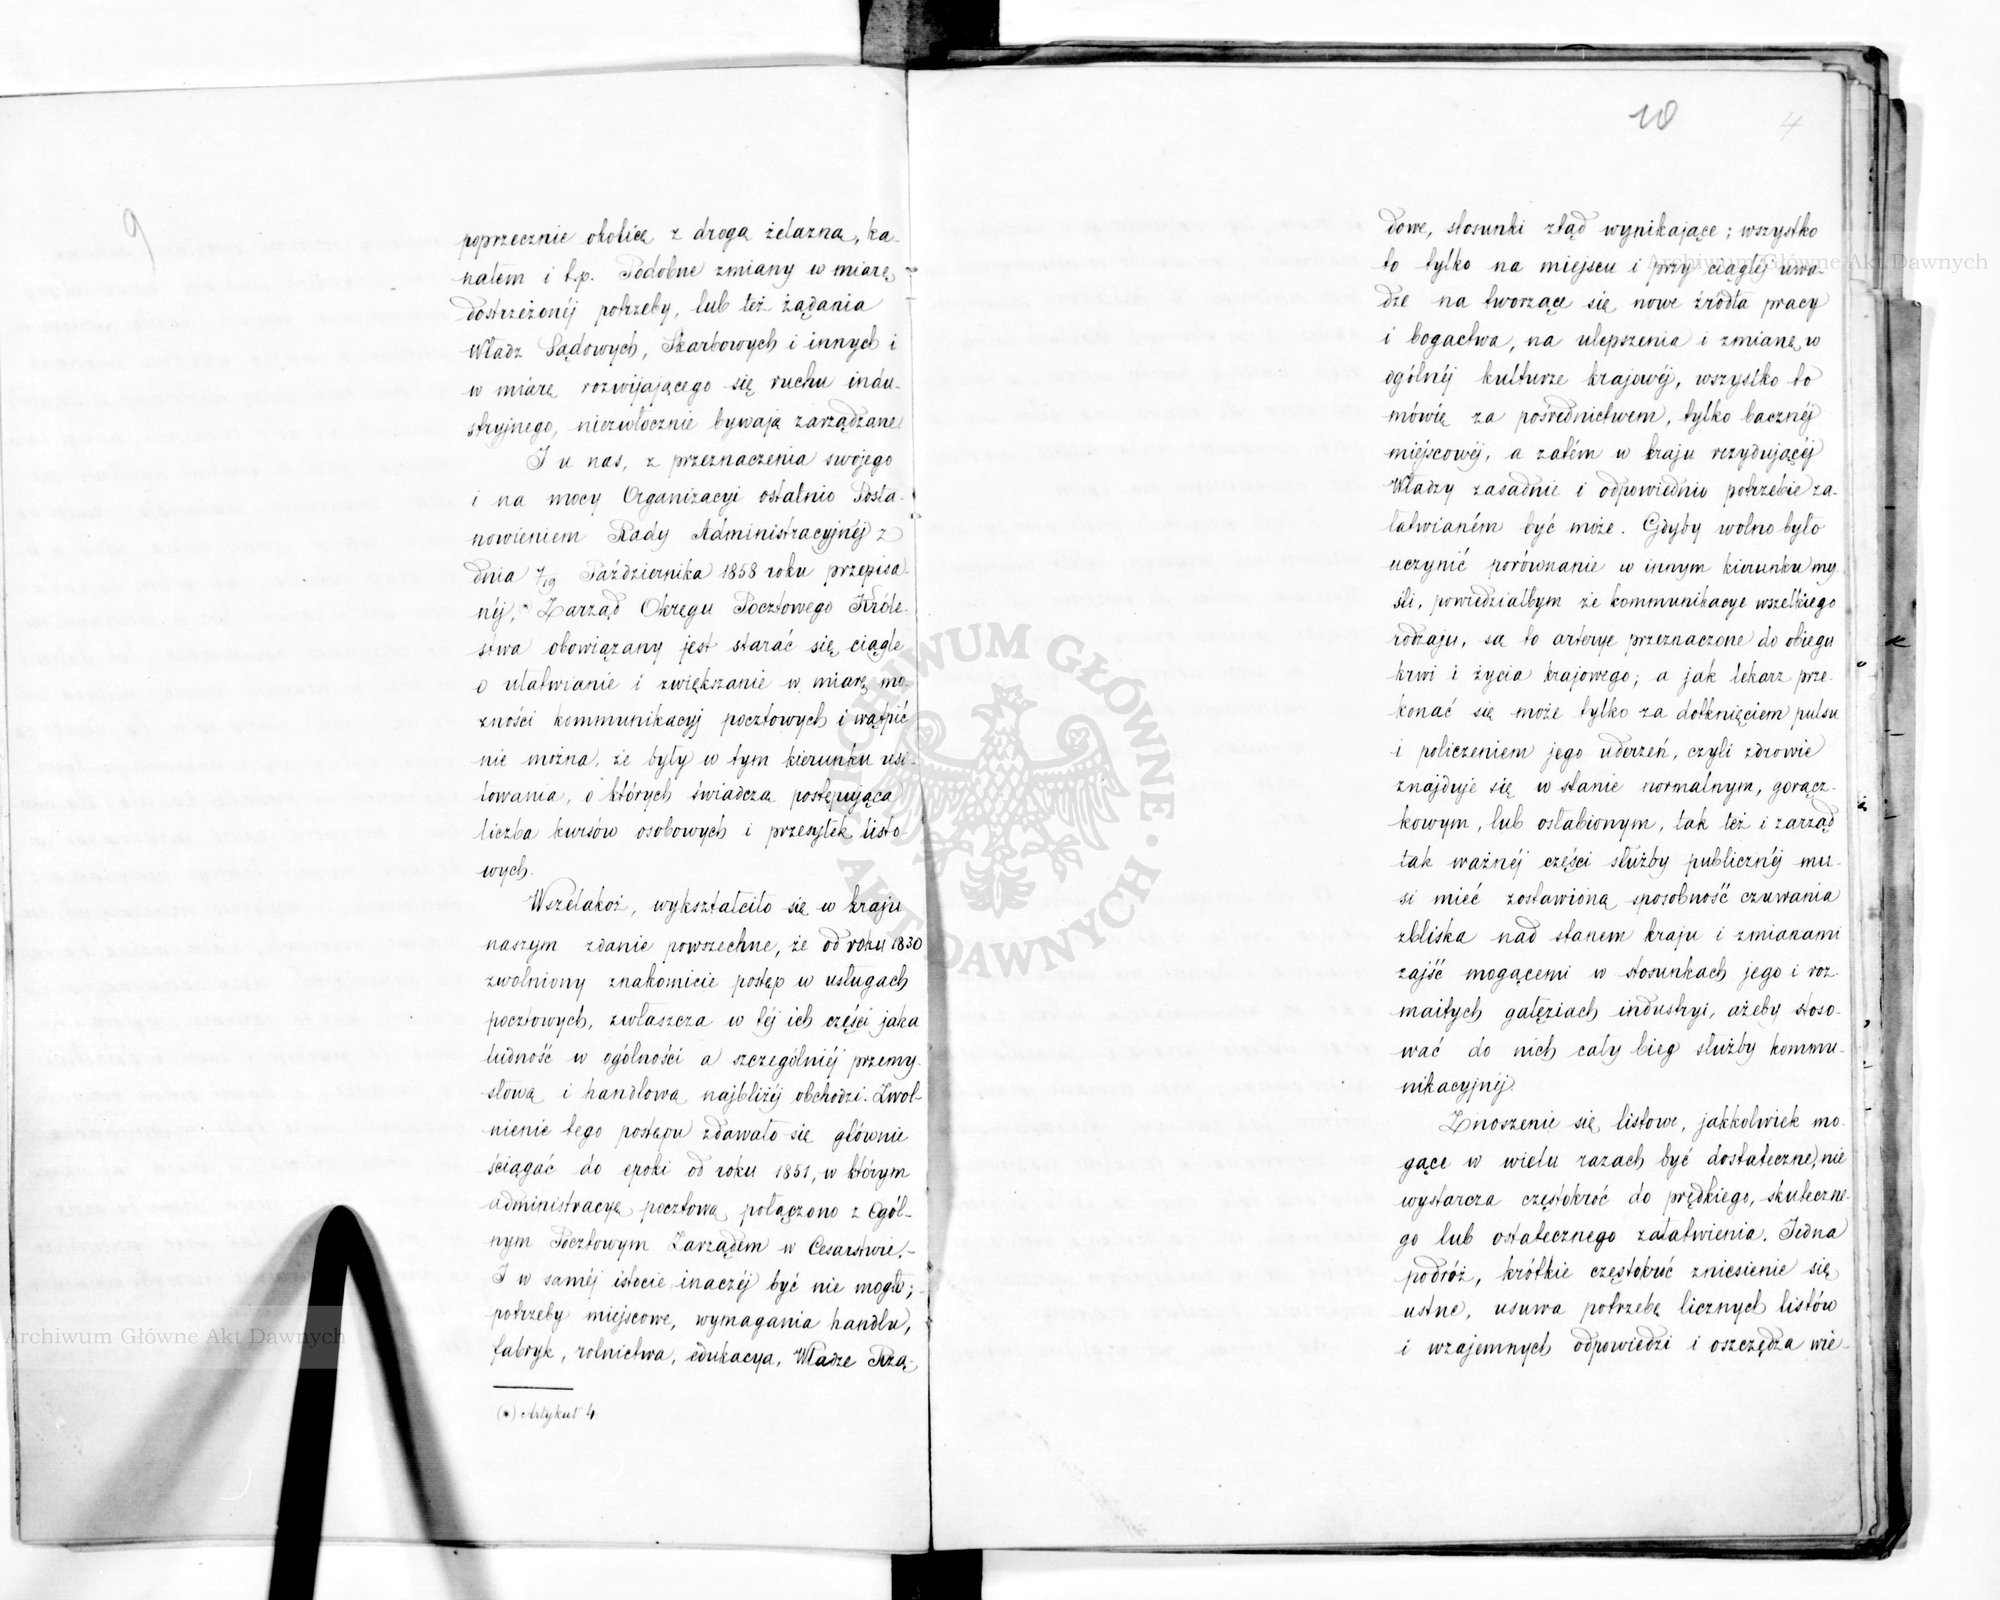 9
poprzecznie okolicą z drogą żelazną, ka-
nałem i t.p. Podobne zmiany w miarę
dostrzeżonéj potrzeby, lub też żądania
Władz Sądowych, Skarbowych i innych i
w miarę rozwijającego się ruchu indu-
stryjnego, niezwłocznie bywają zarządzane
I u nas, z przeznaczenia swojego
i na mocy Organizacyi ostatnio Posta-
nowieniem Rady Administracyjnéj z
dnia 7/19 Października 1858 roku przepisa-
néj,* Zarząd Okręgu Pocztowego Króle-
stwa obowiązany jest starać się ciągle
o ułatwianie i zwiększanie w miarę mo-
żności kommunikacyj pocztowych i wątpić
nie można, że były w tym kierunku usi-
łowania, o których świadczą postępująca
liczba kursów osobowych i przesyłek listo
wych.
Wszelakoż, wykształciło się w kraju
naszym zdanie powszechne, że od roku 1830
zwolniony znakomicie postęp w usługach
pocztowych, zwłaszcza w téj ich części jaka
ludność w ogólności a szczególniéj przemy-
słową i handlową najbliżéj obchodzi. Zwol-
nienie tego postępu zdawało się głównie
ściągać do epoki od roku 1851, w którym
administracyą pocztową połączono z Ogól-
nym Pocztowym Zarządem w Cesarstwie.-
I w saméj istocie inaczéj być nie mogło;-
potrzeby miejscowe, wymagania handlu,
fabryk, rolnictwa, edukacya, Władze Rzą-
(*) Artykuł 4
10
4
dowe, stosunki ztąd wynikające; wszystko
to tylko na miejscu i przy ciągłéj uwa-
dze na tworzące się nowe źródła pracy
i bogactwa, na ulepszenia i zmianę w
ogólnéj kulturze krajowéj, wszystko to
mówię za pośrednictwem, tylko bacznéj
miejscowéj, a zatém w kraju rezydującéj
Władzy zasadnie i odpowiednio potrzebie za-
łatwianém być może. Gdyby wolno było
uczynić porównanie w innym kierunku my-
śli, powiedziałbym że kommunikacye wszelkiego
rodzaju, są to arterye przeznaczone do obiegu
krwi i życia krajowego; a jak lekarz prze-
konać się może tylko za dotknięciem pulsu
i policzeniem jego uderzeń, czyli zdrowie
znajduje się w stanie normalnym, gorącz-
kowym, lub osłabionym, tak też i zarząd
tak ważnéj części służby publicznéj mu-
si mieć zostawioną sposobność czuwania
zbliska nad stanem kraju i zmianami
zajść mogącemi w stosunkach jego i roz-
maitych gałęziach industryi, ażeby stoso-
wać do nich cały bieg służby kommu-
nikacyjnéj.
Znoszenie się listowe, jakkolwiek mo-
gące w wielu razach być dostateczne, nie
wystarcza częstokroć do prędkiego, skuteczne-
go lub ostatecznego załatwienia. Jedna
podróż, krótkie częstokroć zniesienie się
ustne, usuwa potrzebę licznych listów
i wzajemnych odpowiedzi i oszczędza wie-
Archiwum Główne Akt Dawnych
Archiwum Główne Akt Dawnych
ARCHIWUM GŁÓWNE · AKT DAWNYCH ·